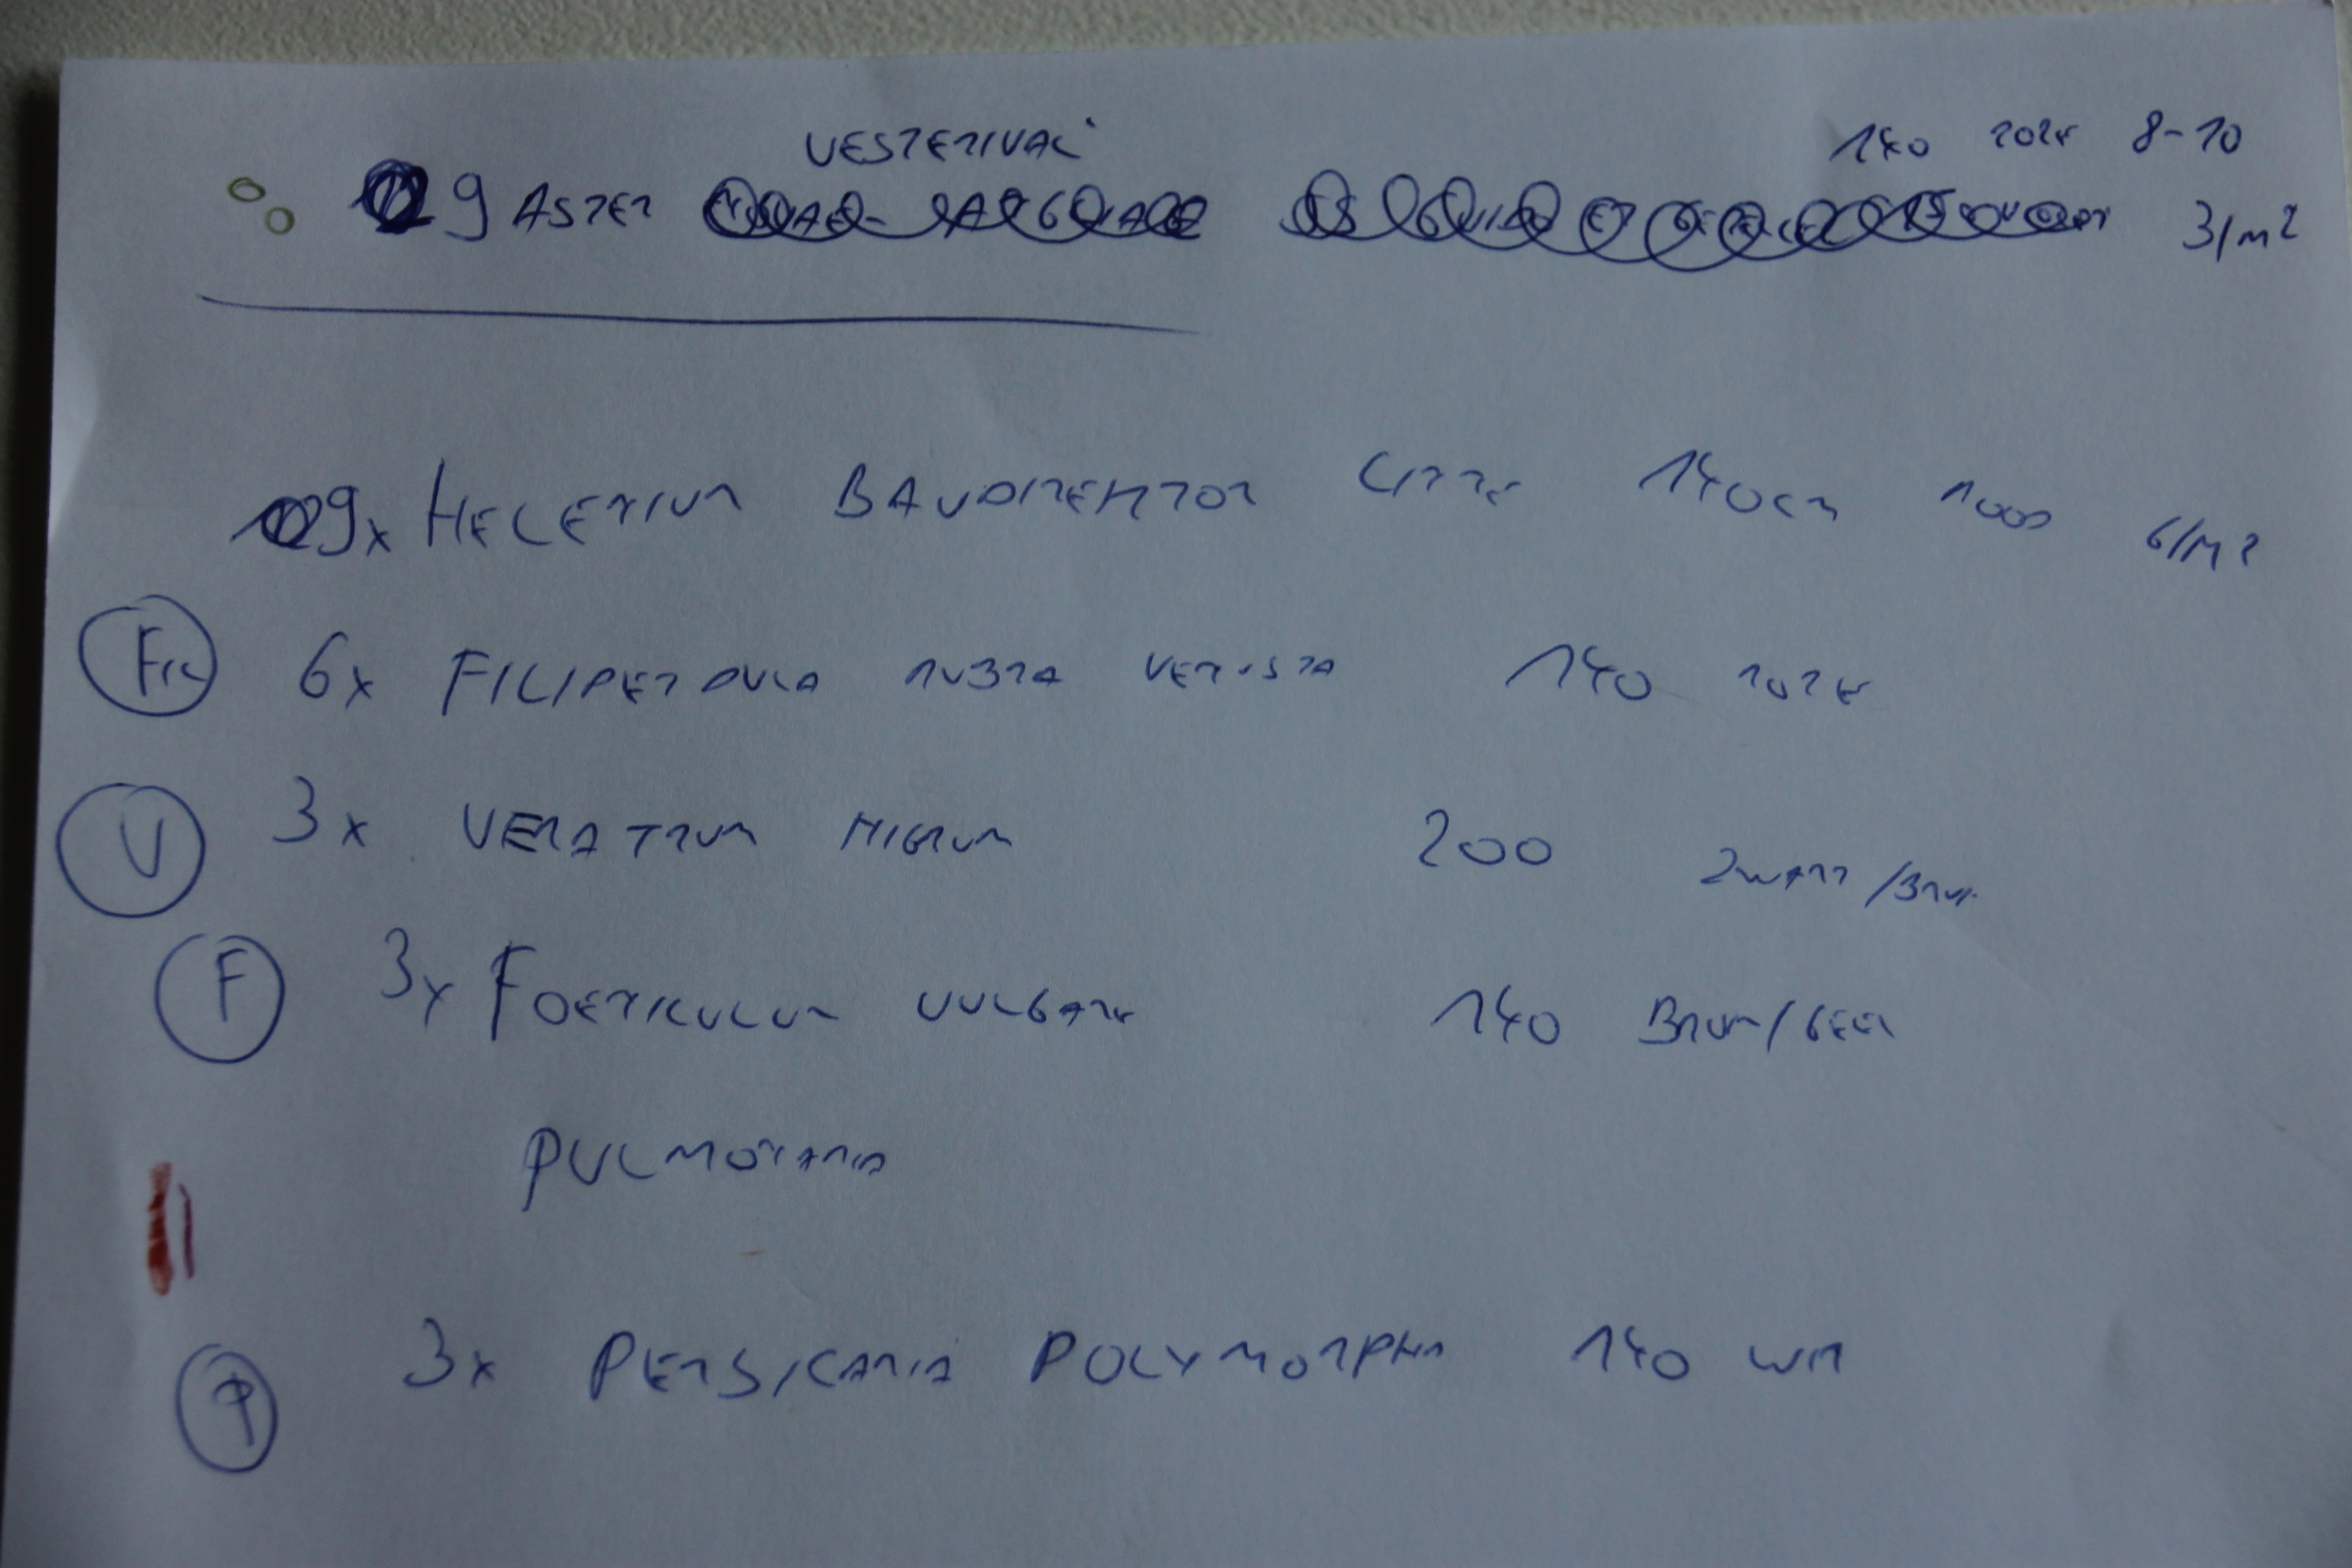 VESTERIVAL 140 ROZE 8-10
9 ASTER 3/m2
9x HELENIUM BAUDIREKTOR LINNE 140cm ROOD 6/m2
Fil 6x FILIPENDULA RUBRA VENUSTA 140 ROZE
V 3x VERATRUM NIGRUM 200 ZWART/BRUN
F 3x FOENICULUM VULGARE 140 BRUN/GEEL
PULMONARIA
P 3x PERSICARIA POLYMORPHA 140 WIT